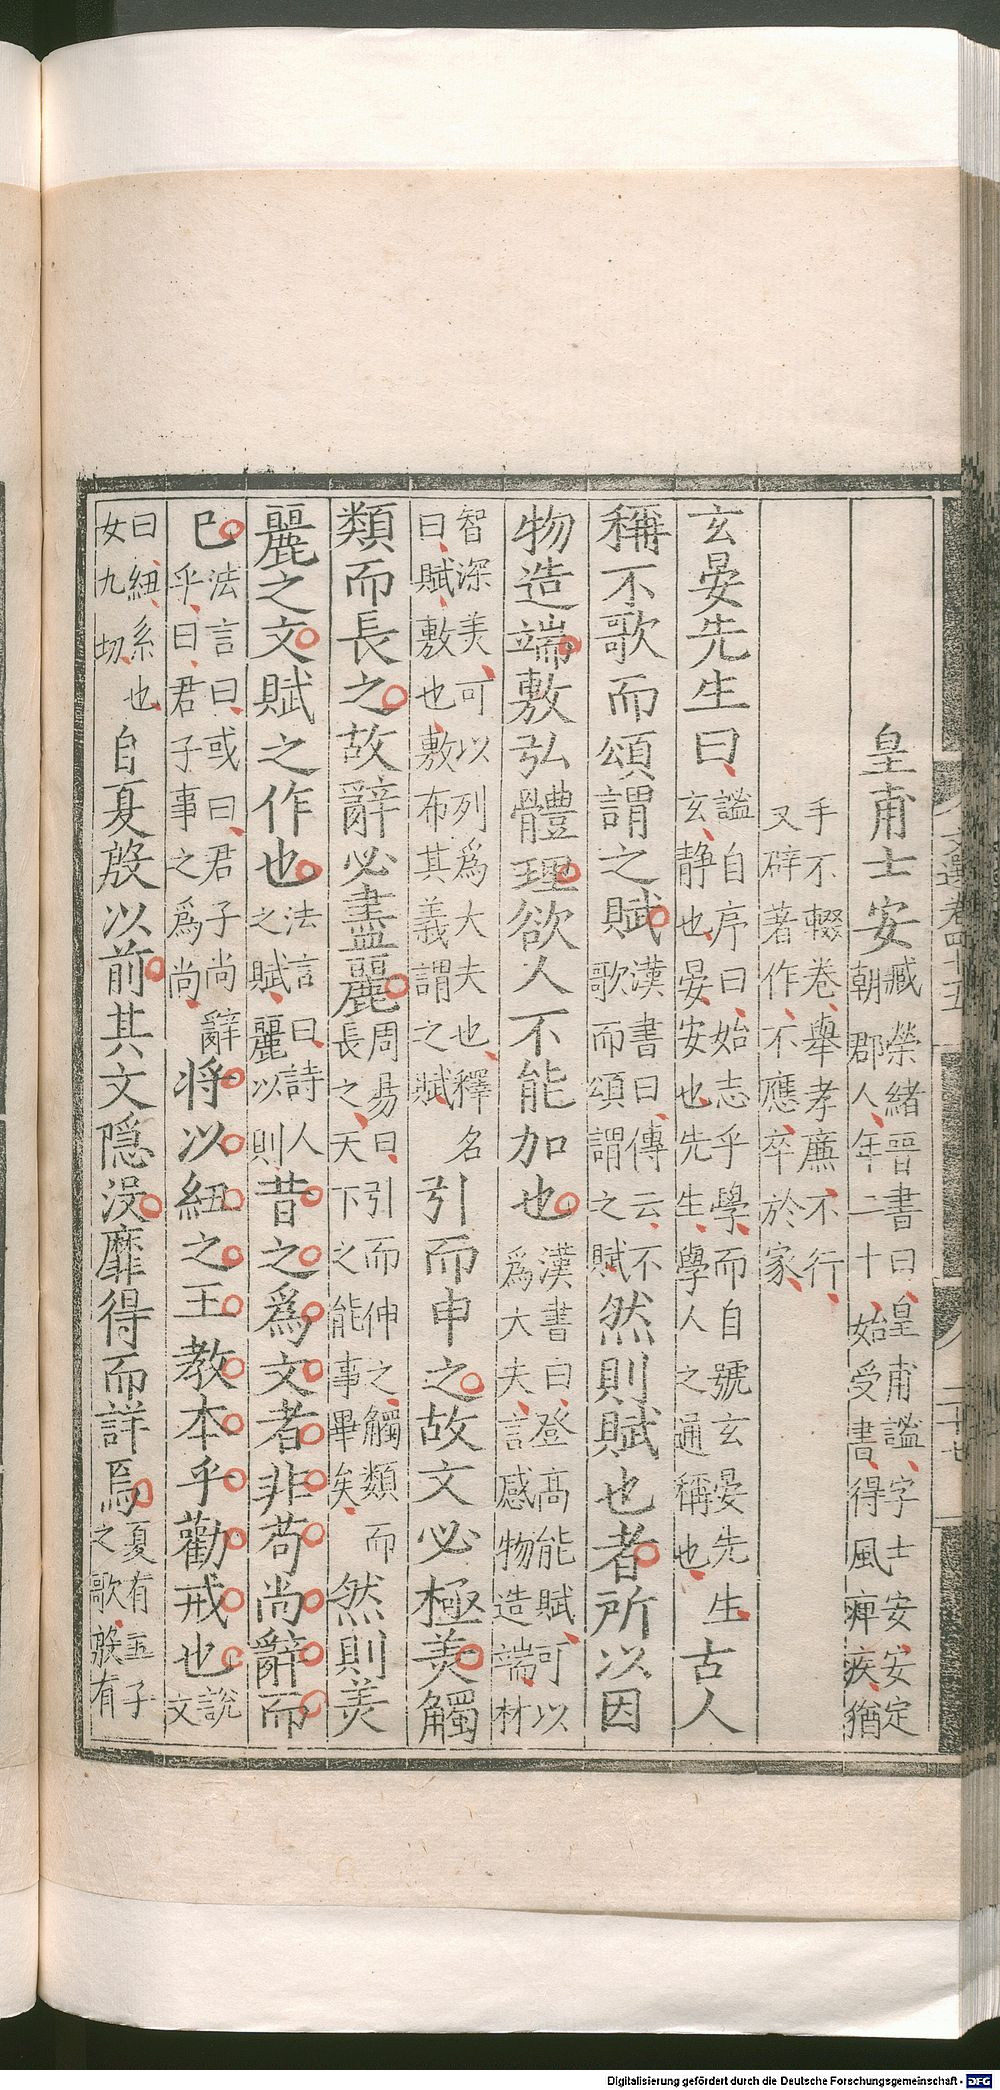 文選卷四十五 二十七
皇甫士安臧榮緒晉書曰皇甫謐字士安安定朝郡人年二十始受書得風痺疾猶
手不輟卷舉孝廉不行又辟著作不應卒於家
玄晏先生曰謐自序曰始志乎學而自號玄晏先生玄静也晏安也先生學人之通稱也古人
稱不歌而頌謂之賦漢書曰傳云不歌而頌謂之賦然則賦也者所以因
物造端敷弘體理欲人不能加也漢書曰登高能賦可以爲大夫言感物造端材
智深美可以列爲大夫也釋名曰賦敷也敷布其義謂之賦引而申之故文必極美觸
類而長之故辭必盡麗周易曰引而伸之觸類而長之天下之能事畢矣然則美
麗之文賦之作也法言曰詩人之賦麗以則昔之爲文者非苟尚辭而
已法言曰或曰君子尚辭乎曰君子事之爲尚将以紐之王教本乎勸戒也說文
曰紐系也女九切自夏殷以前其文隱没靡得而詳焉夏有五子之歌殷有
Digitalisierung gefördert durch die Deutsche Forschungsgemeinschaft - DFG